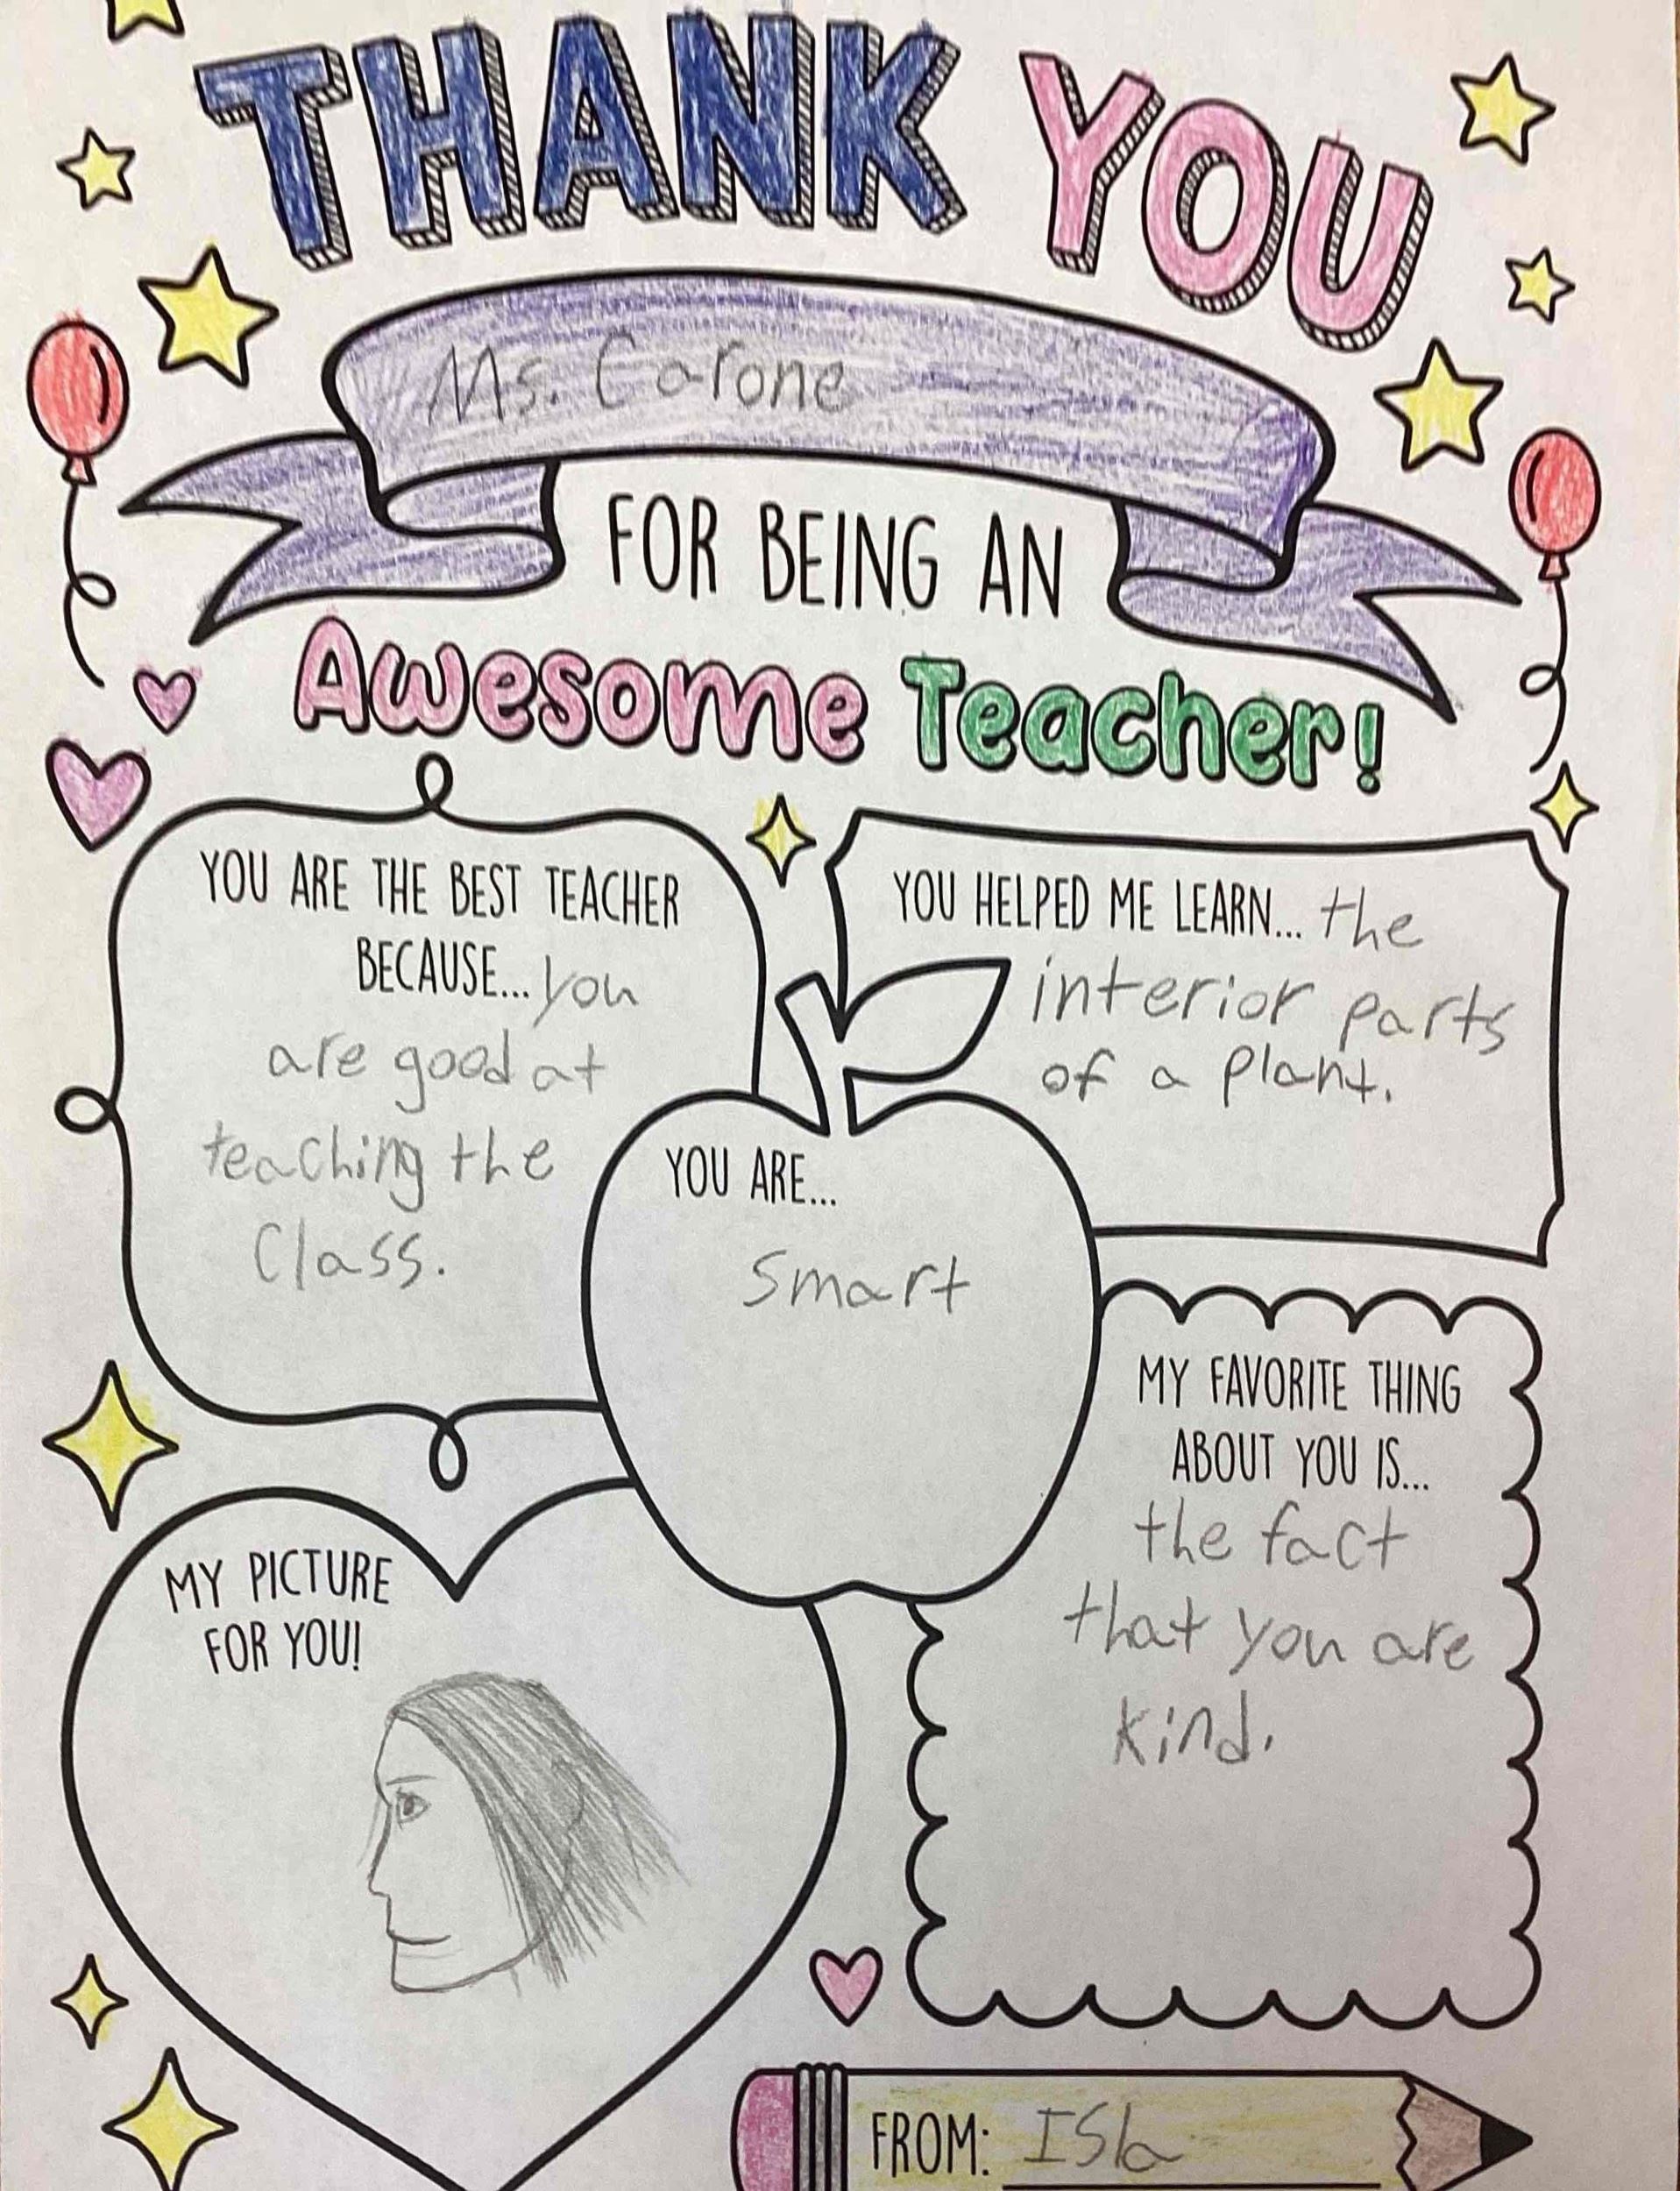 THANK YOU
Ms. Carone
FOR BEING AN
Awesome Teacher!
YOU ARE THE BEST TEACHER
BECAUSE... you
are good at
teaching the
Class.
YOU HELPED ME LEARN... the
interior parts
of a plant.
YOU ARE...
Smart
MY FAVORITE THING
ABOUT YOU IS...
the fact
that you are
kind.
MY PICTURE
FOR YOU!
FROM: ISla